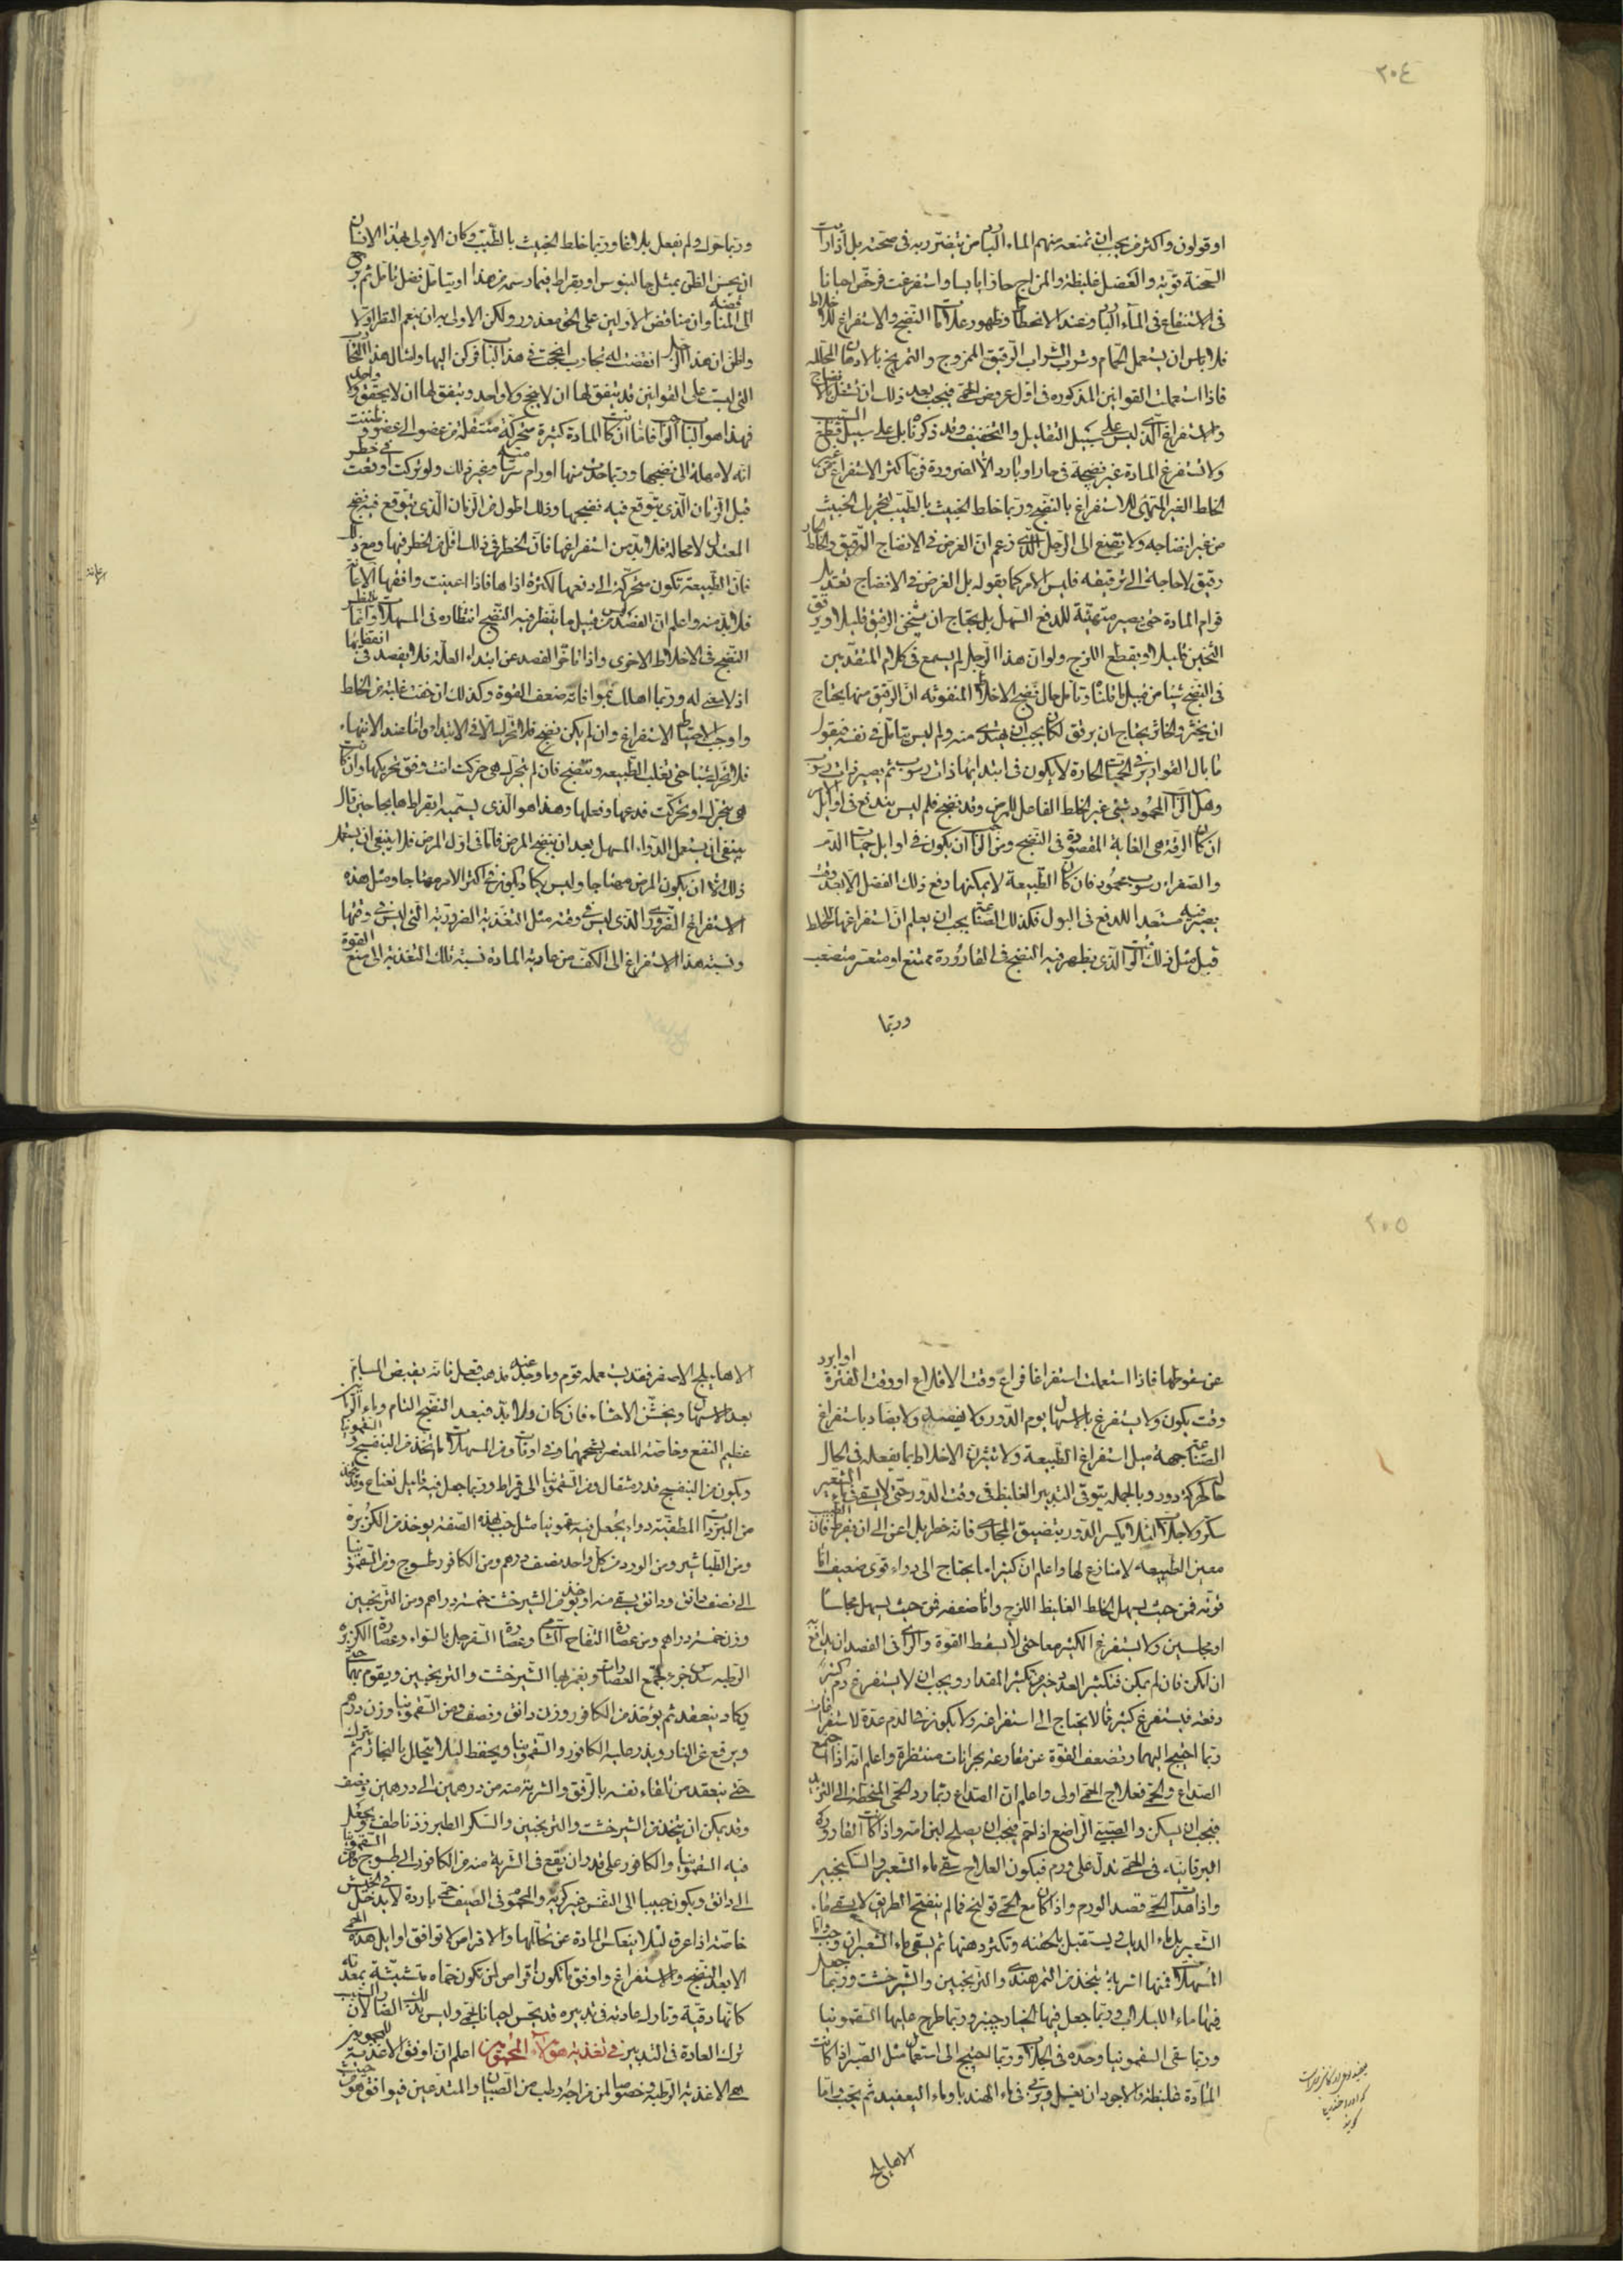 ٢٠٤
او قولون واكثرهم يجب ان تمنعه منهم الماء البارد من يتضرر به في صحته بل اذا رأيت
السحنة قوية والعضل غليظة والمزاج حارا يابسا واستفرغت فرخص احيانا
في الاستنقاع في الماء البارد وعند الانحطاط وظهور علامات النضج والاستفراغ للاخلاط
فلا باس ان يستعمل الحمام وشرب الشراب الرقيق الممزوج والتمريخ بالادهان المحللة
فاذا استعملت القوانين المذكورة في اول عروض الحمى فيجب بعد ذلك ان تشتغل بالانضاج
والاستفراغ الذي ليس على سبيل التقليل والتخفيف وقد ذكرناه بل على سبيل قطع السبب
ولا تستفرغ المادة غير نضيجة في حار او بارد الا لضرورة فربما كثر الاستفراغ من غير
الخلط الغير المتهيئ للاستفراغ بالنضج وربما خلط الخبيث بالطيب لتحريك الخبيث
من غير انضاجه ولا تصغ الى الرجل الذي زعم ان الغرض في الانضاج الترقيق والخلط الحار
رقيق لا حاجة الى ترقيقه فليس الامر كما يقوله بل الغرض في الانضاج تعديل
قوام المادة حتى يصير متهيئة للدفع السهل بل يحتاج ان يثخن الرقيق قليلا ويرقق
الثخين قليلا ويقطع اللزج ولو ان هذا الرجل لم يسمع في كلام المتقدمين
في النضج شيئا من قبيل ما قلناه وتامل حال نضج الاخلاط المنفوثة ان الرقيق منها يحتاج
ان يخثر والخاثر يحتاج ان يرقق لكان يجب ان يهتدي منه ولم ليس يتامل في نفسه فيقول
ما بال القوارير في الحميات الحارة لا يكون في ابتدائها ذات رسوب ثم يصير ذات رسوب
وهل الراسب المحمود شيء غير الخلط الفاعل للمرض وقد نضج فلم ليس يندفع في اوائل الامر
ان كانت الرقة هي الغاية المقصودة في النضج ومن المحال ان يكون في اوائل حميات الدم
والصفراء رسوب محمود فان كان الطبيعة لا يمكنها دفع ذلك الفضل الا بعد وقت
يصير فيه مستعدا للدفع في البول فكذلك الصناعة يجب ان يعلم ان استفراغها للخلط
قبل مثل ذلك الوقت الذي يظهر فيه النضج في القارورة ممتنع او متعسر متصعب
وربما
وربما حرك ولم يفعل بلاغا وربما خلط الخبيث بالطيب وكان الاولى بهذا الانسان
ان يحسن الظن بمثل جالينوس او بقراط فيما رسمه من هذا او يتامل فضل تامل ثم يرجع
الى المناقضة وان مناقض الاولين على الحق معذور ولكن الاولى به ان ينعم النظر اولا
واظن ان هذا الرجل اتفقت له تجارب انجحت في هذا الباب فركن اليها ولمثال هذا التجارب
التي ليست على القوانين قد يتفق لها ان لا ينجح ولا واحد ويتفق لها ان لا يخفق ولا واحد
فهذا هو الباب الواجب فاما ان كانت المادة كثيرة متحركة منتقلة من عضو الى عضو وظننت
انه لا مهلة الى نضجها وربما حدث منها اورام سرسامية وغير ذلك ولو تركت اوقعت في خطر
قبل الزمان الذي يتوقع فيه نضجها وذلك اطول من الزمان الذي يتوقع فيه نضج
المعتدل لا محالة فلا بد من استفراغها فان الخطر في ذلك اقل من الخطر فيها ومع ذلك
فان الطبيعة تكون متحركة الى دفعها لكثرة اذاها فاذا اعينت وافقها الاعانة
فلا بد منه واعلم ان الفصد ليس من قبيل ما ينتظر فيه النضج انتظاره في المسهلات وانما ينتظر
النضج في الاخلاط الاخرى واذا تاخر الفصد عن ابتداء العلة فلا يفصد في انقضائها
اذ لا معنى له وربما اهلك بموافاته ضعف القوة وكذلك ان خفت غلبة من الخلط
واوجب الاحتياط الاستفراغ وان لم يكن نضج فلا تحرك الا في الابتداء واما عند الانتهاء
فلا تحرك شيئا حتى يغلب الطبيعة وتنضج فان لم تحرك هي حركت انت وفق تحريكها وان كانت
هي تحرك او تحركت فدعها وفعلها وهذا هو الذي يسميه ابقراط هايجا حين قال
ينبغي ان يستعمل الدواء المسهل بعد ان ينضج المرض فاما في اول المرض فلا ينبغي ان يستعمل
ذلك الا ان يكون المرض مهتاجا وليس يكاد يكون في اكثر الامر مهتاجا ومثل هذه
الاستفراغ الضروري الذي ليس في وقته مثل التغذية الضرورية التي ليس في وقتها
ونسبة هذا الاستفراغ الى الكف من عادية المادة نسبة تلك التغذية الى منع القوة
٢٠٥
عن سقوطها فاذا استعملت استفراغا فراع وقت الاقلاع او وقت الفترة او ابرد
وقت يكون ولا يستفرغ بالاسهال يوم الدور ولا يفصد ولا يضاد باستفراغ
الصناعة جهة ميل استفراغ الطبيعة ولا تثيرن الاخلاط بما يفعله في الحال
حال حركة دور وبالجملة يتوقى التدبير الغليظ في وقت الدور حتى لا يسقى ماء الشعير
سكر ولا جلاب لئلا يكسر الدور بتضييق المجاري فانه خطر بل اعن الى ان يفرط فان الطبيب
معين الطبيعة لا منازع لها واعلم ان كثيرا ما يحتاج الى دواء قوي ضعيف اما
قوته فمن حيث يسهل الخلط الغليظ اللزج واما ضعفه فمن حيث يسهل مجلسا
او مجلسين ولا يستفرغ الكثير معا حتى لا يسقط القوة والراي في الفصد ان يدافع
ان امكن فان لم يمكن فتكثير العدد خير من تكثير المقدار ويجب ان لا يستفرغ دم كثير
دفعة فيستفرغ كثير مما لا يحتاج الى استفراغه ولا يكون في الدم عدة لاستفراغات
ربما احتيج اليها وتضعف القوة عن مقارعة بحرانات منتظرة واعلم انه اذا اجتمع
الصداع والحمى فعلاج الحمى اولى واعلم ان الصداع ربما رد الحمى المنحطة الى التزيد
فيجب ان يسكن والصبي الراضع اذا حم فيجب ان يصلح لبن امه واذا كانت القارورة
اليرقانية في الحمى تدل على ورم فيكون العلاج سقي ماء الشعير والسكنجبين
واذا هدات الحمى فصد الورم واذا كان مع الحمى قولنج فما لم ينفتح الطريق لا يسقى ماء
الشعير بل ماء الديك ويستقبل بالحقنة وتكثر دهنها ثم يسقى ماء الشعير ان وجب واما
المسهلات فمنها اشربة يتخذ من التمر هندي والترنجبين والشيرخشت وربما جعل
فيها ماء اللبلاب وربما جعل فيها الخيار چنبر وربما طرح عليها السقمونيا
وربما سقي السقمونيا وحده في الجلاب وربما احتيج الى استعمال مثل الصبر اذا كانت
المادة غليظة والاجود ان يغسل ويربى في ماء الهندبا وماء اليعضيد ثم يحبب واما
الاهليلج
الاهليلج الاصفر فقد يستعمله قوم وما وجد عنه مذهب فعل فانه يقبض المسام
بعد الاسهال ويخشن الاحشاء فان كان ولا بد فبعد النضج التام وماء الرمانين
عظيم النفع وخاصة المعتصر بشحمهما وفي اوقات ومن المسهلات ما اتخذ من البنفسج والسقمونيا
ويكون من البنفسج قدر مثقال ومن السقمونيا الى قيراط وربما جعل فيه قليل نعناع وقد يتخذ
من المبردات المطفئة دواء يجعل فيه سقمونيا مثل حب بهذه الصفة يوخذ من الكزبرة
ومن الطباشير ومن الورد من كل واحد نصف درهم ومن الكافور طسوج ومن السقمونيا
الى نصف دانق ودانق يسقى منه او يوخذ من الشيرخشت خمسة دراهم ومن الترنجبين
وزن خمسة دراهم ومن عصارة التفاح الشامي وعصارة السفرجل بالسواء وعصارة الكزبرة
الرطبة سدس جزء تجمع العصارات ويغمر بها الشيرخشت والترنجبين ويقوم بهما حتى
يكاد ينعقد ثم يوخذ من الكافور وزن دانق ونصف ومن السقمونيا وزن درهم
ويرفع عن النار ويذر عليه الكافور والسقمونيا ويحفظ لئلا يتحلل بالبخار ثم يترك
حتى ينعقد من تلقاء نفسه بالرفق والشربة منه من درهمين الى درهمين ونصف
وقد يمكن ان يتخذ من الشيرخشت والترنجبين والسكر الطبرزذ ناطف ويجعل
فيه السقمونيا والكافور على قدر ان يقع في الشربة منه من الكافور الى طسوج ومن السقمونيا
الى دانق ويكون حبيبا الى النفس غير كريه والمحموم في الصيف حمى باردة لا يدخل في الخيش
خاصة اذا عرق لئلا ينعكس المادة عن تحللها والاقراص لا توافق اوايل هذه الحمى
الا بعد النضج والاستفراغ واوفق ما تكون اقراص لمن تكون حماه متشبثة بمعدته
كانها دقية وتناول عادته في تدبيره قد يحس احيانا لحمى وليس بذلك الضار لان السبب
ترك العادة في التدبير في تغذية هؤلاء المحمومين اعلم ان اوفق الاغذية للمحمومين
هي الاغذية الرطبة وخصوصا لمن مزاجه رطب من الصبيان والمتدعين فيوافق هؤلاء من حيث